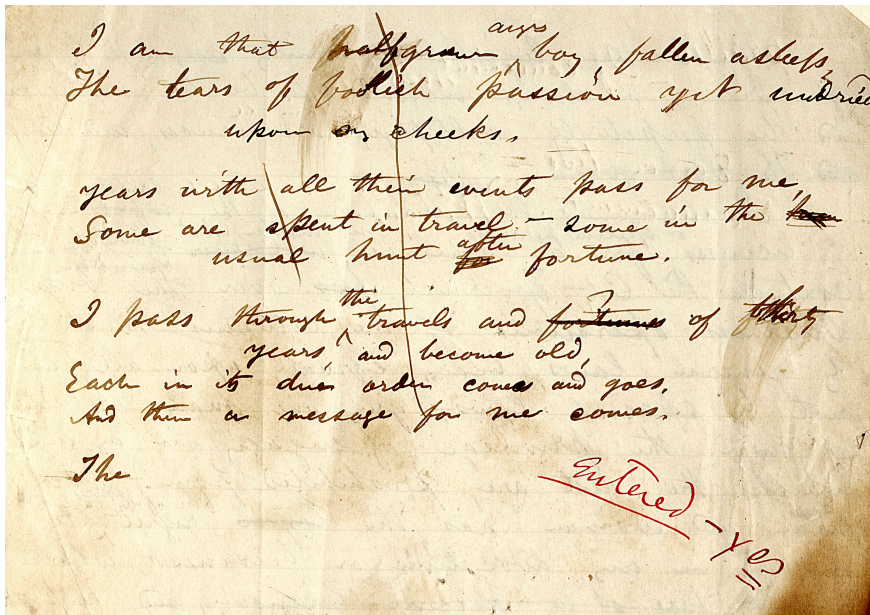 I am that halfgrown angry boy fallen asleep,
The tears of foolish passion yet undried
upon my cheeks.
years with all their events pass for me,
Some are spent in travel – some in the
usual hunt for after fortune.
I pass through the travels and fortunes ? of thirty
years, and become old,
Each in its due order comes and goes,
And then a message for me comes.
The
Entered – Yes